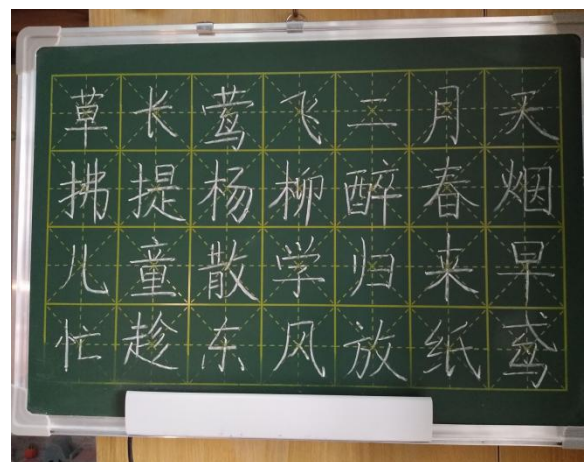 草长莺飞二月天
拂提杨柳醉春烟
儿童散学归来早
忙趁东风放纸鸢